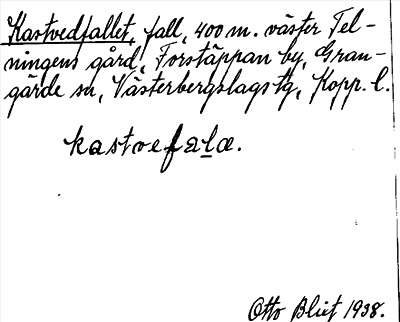 Kastvedfallet, fall, 400 m. väster Tel-
ningens gård, Forstäppan by, Gran-
gärde sn, Västerbergslags tg, Kopp. l.
kastvefala.
Otto Blixt 1938.